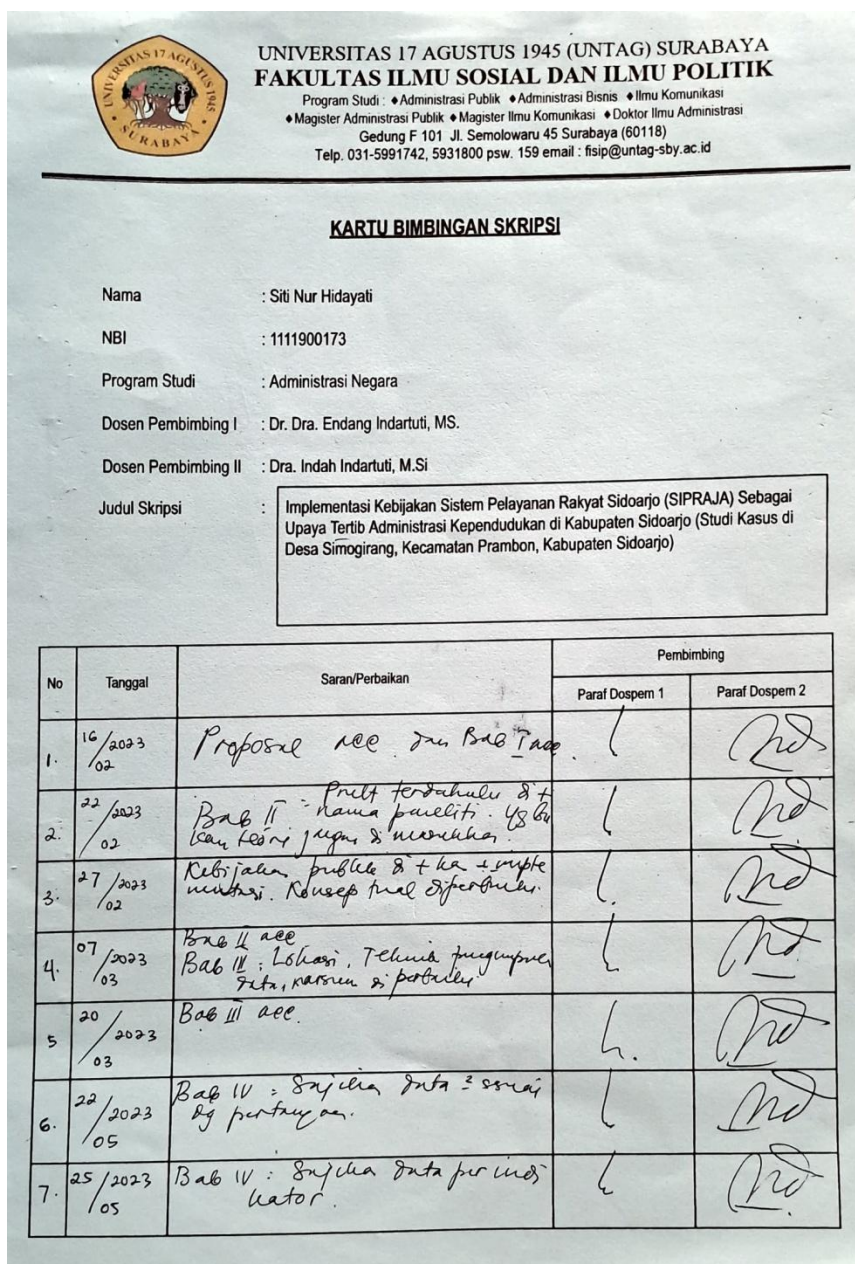 UNIVERSITAS 17 AGUSTUS 1945
SURABAYA
UNIVERSITAS 17 AGUSTUS 1945 (UNTAG) SURABAYA
FAKULTAS ILMU SOSIAL DAN ILMU POLITIK
Program Studi : ♦Administrasi Publik ♦Administrasi Bisnis ♦Ilmu Komunikasi
♦Magister Administrasi Publik ♦Magister Ilmu Komunikasi ♦Doktor Ilmu Administrasi
Gedung F 101 Jl. Semolowaru 45 Surabaya (60118)
Telp. 031-5991742, 5931800 psw. 159 email : fisip@untag-sby.ac.id
KARTU BIMBINGAN SKRIPSI
Nama : Siti Nur Hidayati
NBI : 1111900173
Program Studi : Administrasi Negara
Dosen Pembimbing I : Dr. Dra. Endang Indartuti, MS.
Dosen Pembimbing II : Dra. Indah Indartuti, M.Si
Judul Skripsi : Implementasi Kebijakan Sistem Pelayanan Rakyat Sidoarjo (SIPRAJA) Sebagai
Upaya Tertib Administrasi Kependudukan di Kabupaten Sidoarjo (Studi Kasus di
Desa Simogirang, Kecamatan Prambon, Kabupaten Sidoarjo)
No Tanggal Saran/Perbaikan Pembimbing
Paraf Dospem 1 Paraf Dospem 2
1. 16/02/2023 Proposal acc dan Bab I acc.
2. 22/02/2023 Bab II = terdahulu di +
nama peneliti.
kan teori juga di
3. 27/02/2023 Kebijakan publik di +
Konsep
4. 07/03/2023 Bab II acc
Bab III : Lokasi, Teknik
data,
5 20/03/2023 Bab III acc.
6. 22/05/2023 Bab IV = Sajikan data ² sesuai
dg
7. 25/05/2023 Bab IV : Sajikan data per indi
kator.